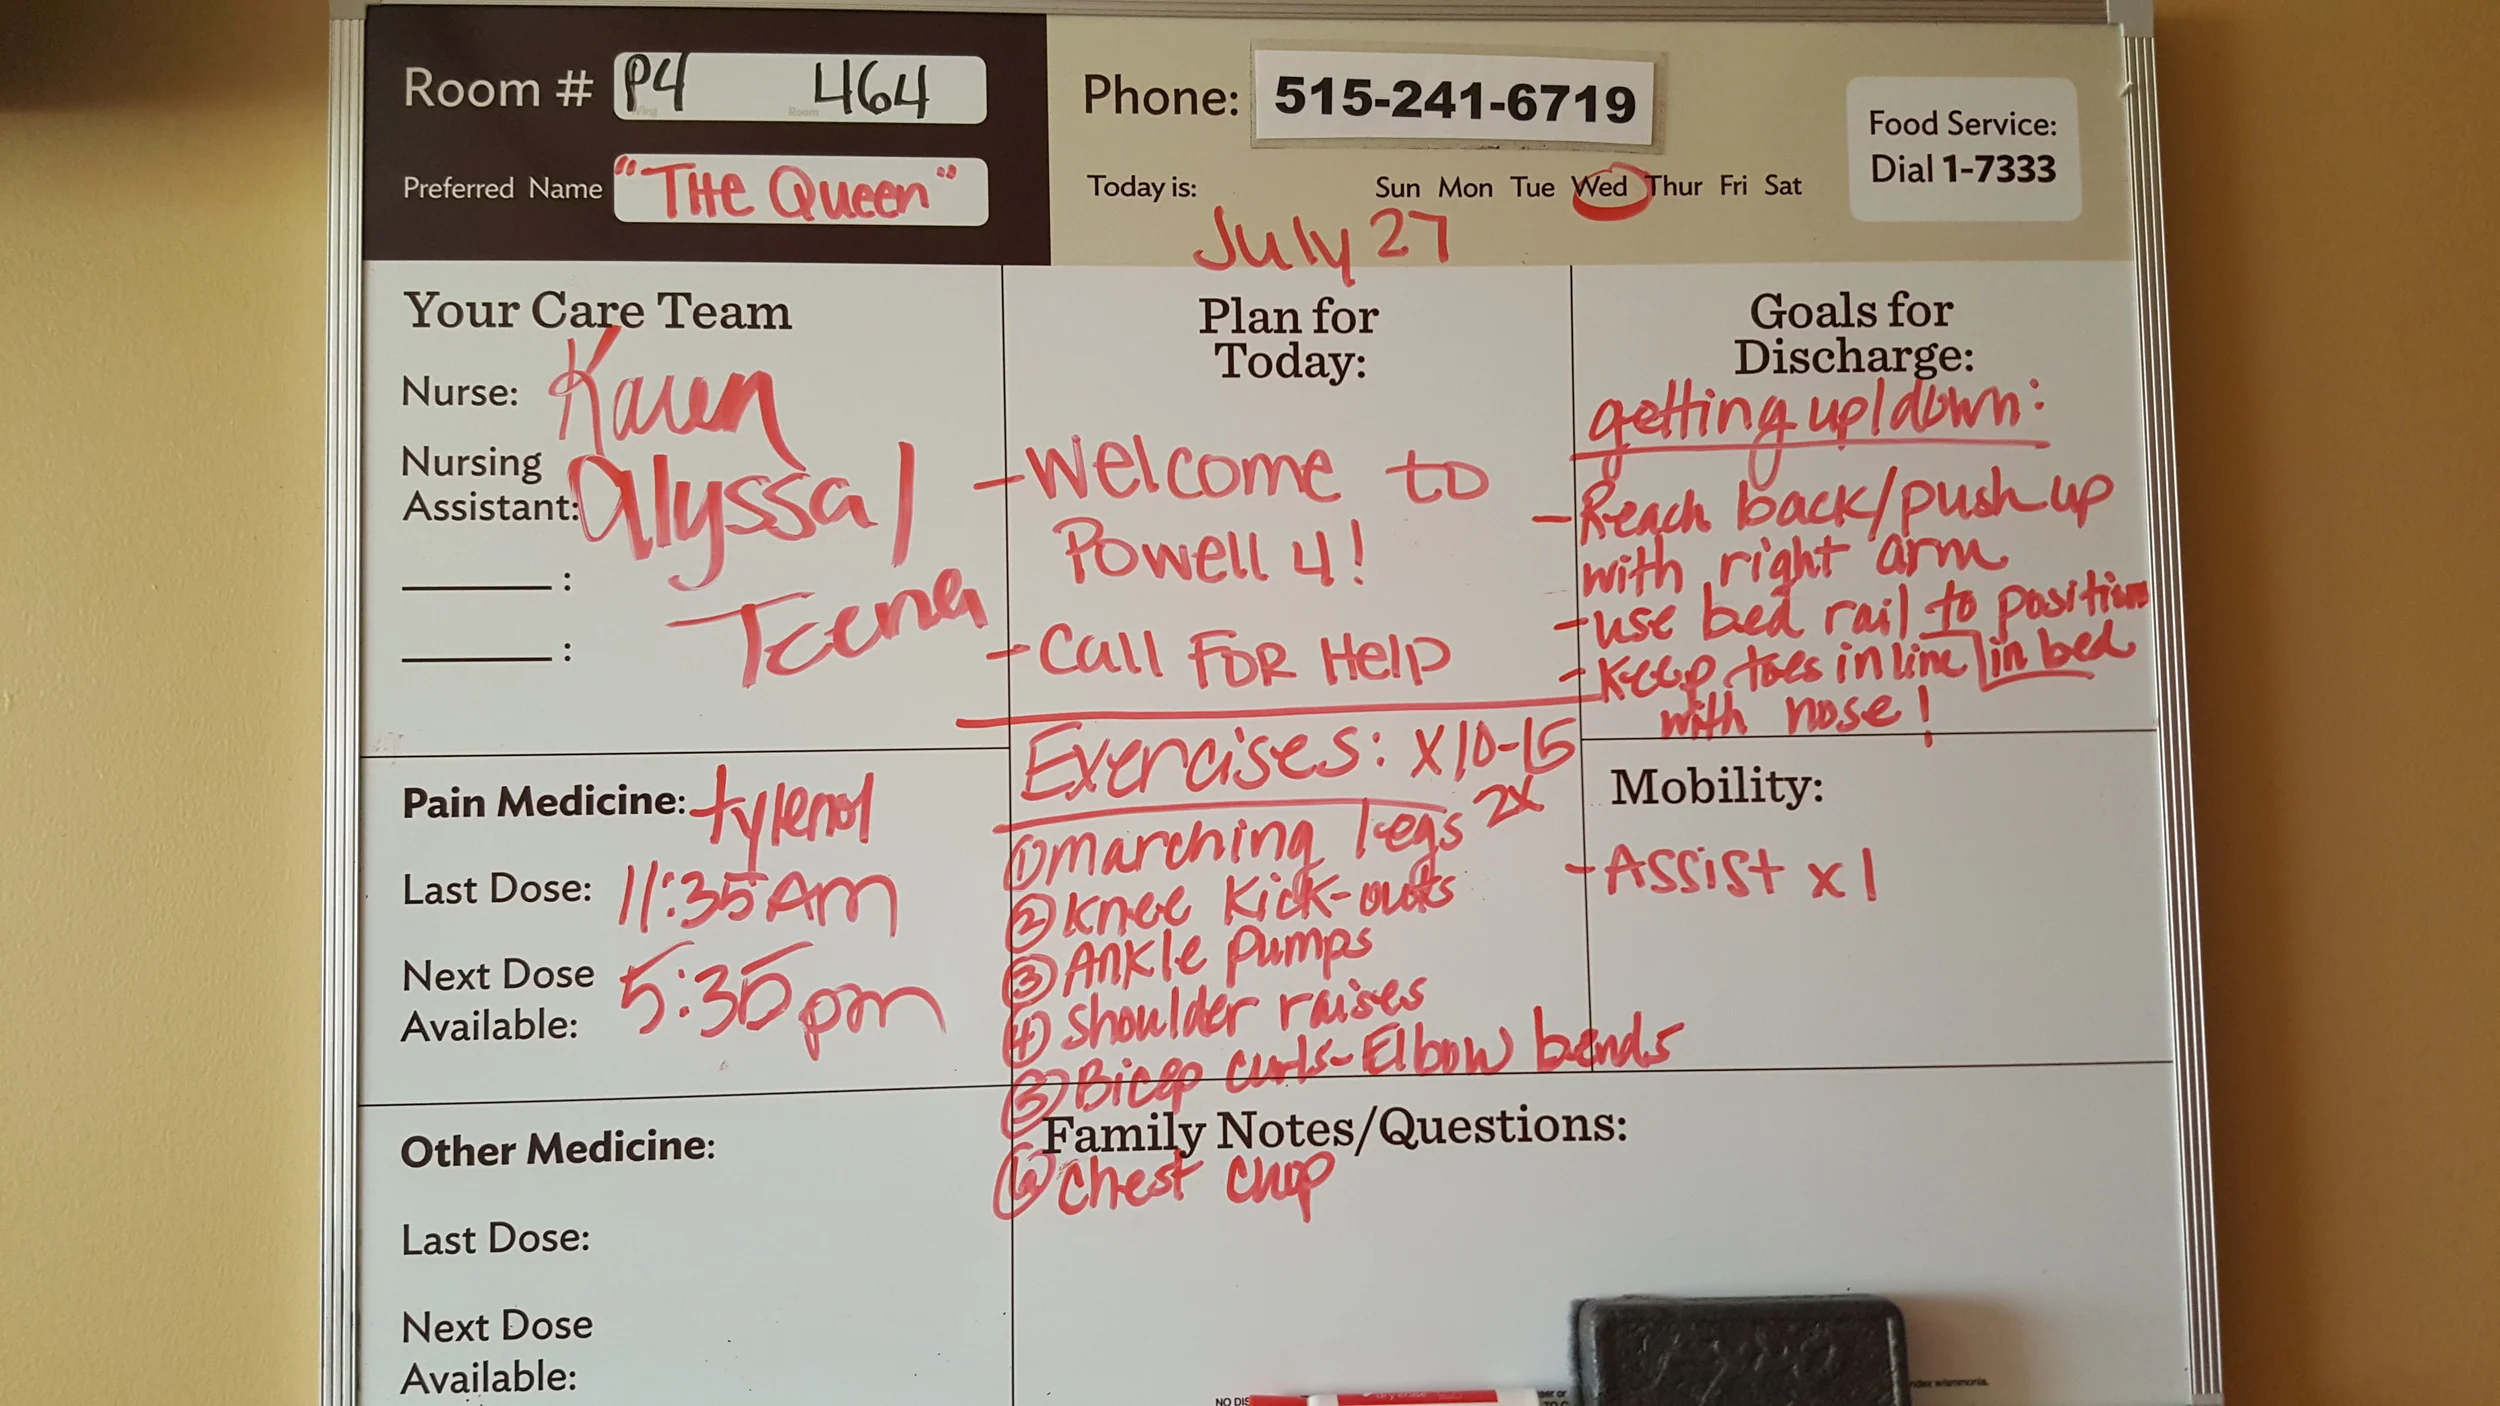 Room # P4 464
Wing Room
Preferred Name "THe Queen"
Phone: 515-241-6719
Today is: Sun Mon Tue Wed Thur Fri Sat
July 27
Food Service:
Dial 1-7333
Your Care Team
Nurse: Karen
Nursing
Assistant: Alyssa/
Teena
:
:
Plan for
Today:
-Welcome to
Powell 4!
-Call FOR Help
Exercises: x10-15
2x
① marching legs
② Knee Kick-outs
③ Ankle pumps
④ shoulder raises
⑤ Bicep curls-Elbow bends
⑥ Chest chop
Goals for
Discharge:
getting up/down:
-Reach back/push up
with right arm
-use bed rail to position
in bed
-Keep toes in line
with nose!
Pain Medicine: tylenol
Last Dose: 11:35 AM
Next Dose
Available: 5:35pm
Mobility:
-Assist x1
Other Medicine:
Last Dose:
Next Dose
Available:
Family Notes/Questions:
NO DIS